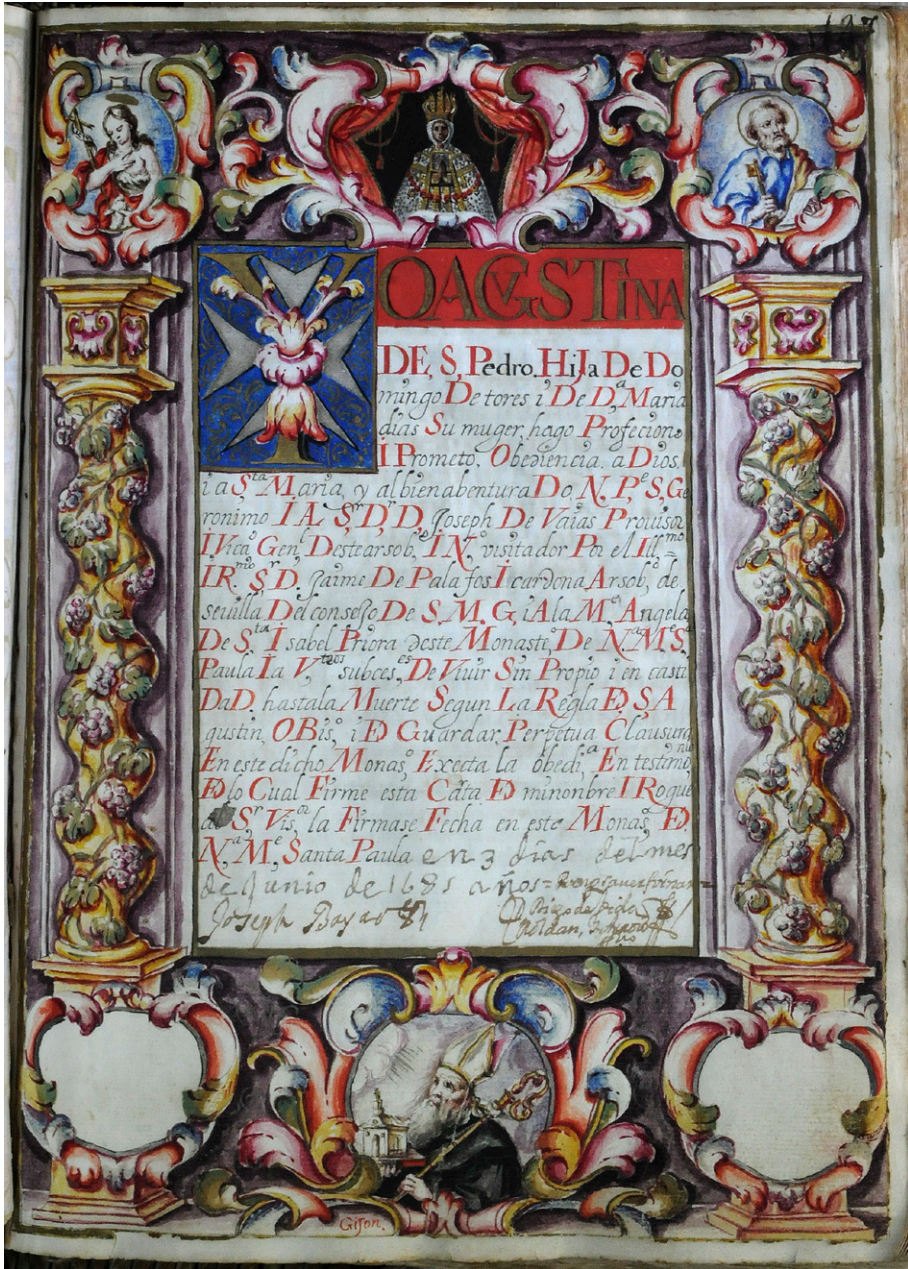 YO AGVSTINA
DE, S, Pedro, HiJa De Do
mingo De tores i De D,ª Maria
dias Su muger, hago Profecion,
I Prometo, Obediencia, a Dios,
i a S,ta Maria, y al bien abentura Do, N, P,e S, Ge
ronimo I A, S,r D,r D, Joseph De Vaias Provisor
I Vicaº Gen,l Deste arsob,º I N,º visitador Por el Ill,mo
I R,mo S,r D, Jaime De Palafos I cardona Arsob,º de
sevilla Del consejo De S, M, G, i A la M,e Angela
De S,ta Isabel Priora deste Monastº, De N,ª M,e S,ta
Paula I a V,tras subces,es De Vivir Sin Propio i en casti
DaD, hasta la Muerte Segun La Regla DE, S, A
gustin, OBis,º i DE Guardar, Perpetua Clausura
En este dicho Monasº, Execta la obedi,ª En testimo,nio
DE lo Cual Firme esta Carta DE mi nonbre I Rogue
al S,r Vis,or la Firmase Fecha en este Monasº, DE
N,ª M,e Santa Paula en 3 dias del mes
de Junio de 1685 años=
Joseph Bayas
Roldan,
Gijon,